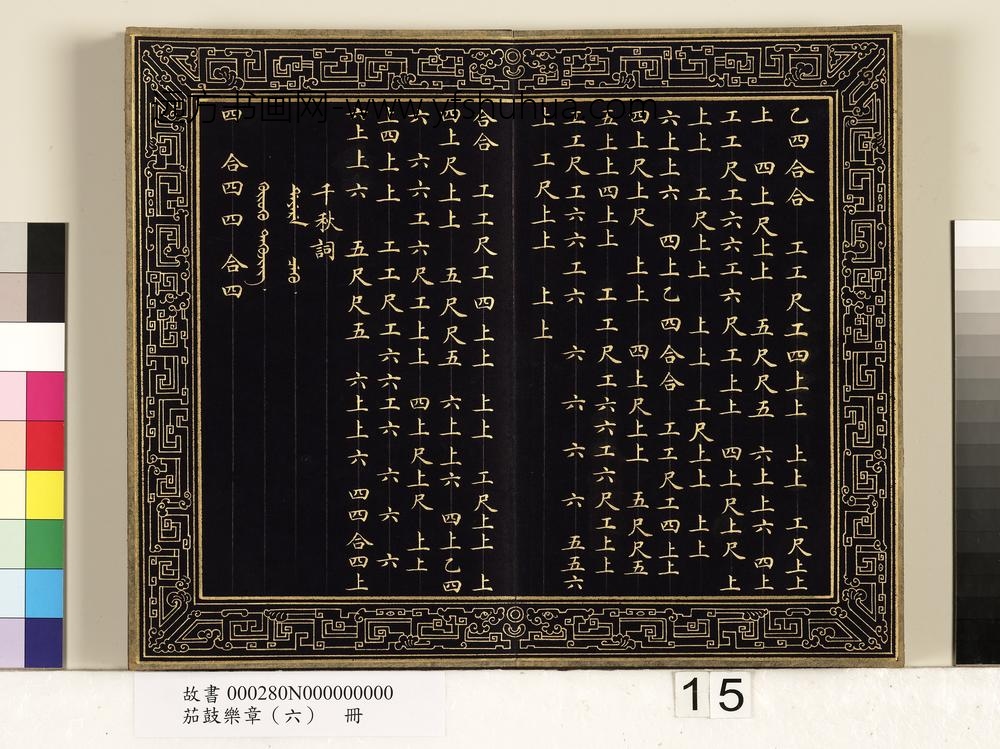 乙四合合 工工尺工四上上 上上 工尺上上
上 四上尺上上 五尺尺五 六上上六 四上
工工尺工六六工六尺工上上 四上尺上尺 上
上上 工尺上上 上上 工尺上上 上上
六上上六 四上乙四合合 工工尺工四上上
四上尺上尺 上上 四上尺上上 五尺尺五
五上上四上上 工工尺工六六工六尺工上上
工尺工六六工六 六 六 六 六 五五六
上 工尺上上 上上
合合 工工尺工四上上 上上 工尺上上 上
四上尺上上 五尺尺五 六上上六 四上乙四
六 六六工六尺工上上 四上尺上尺 上上
四上上 工工尺工六六工六 六 六 六
六上上六 五尺尺五 六上上六 四四合四上
千秋詞
四 合四四 合四
方书画网-www.yfshuhua.com
故書 000280N000000000
茄鼓樂章（六） 冊
15